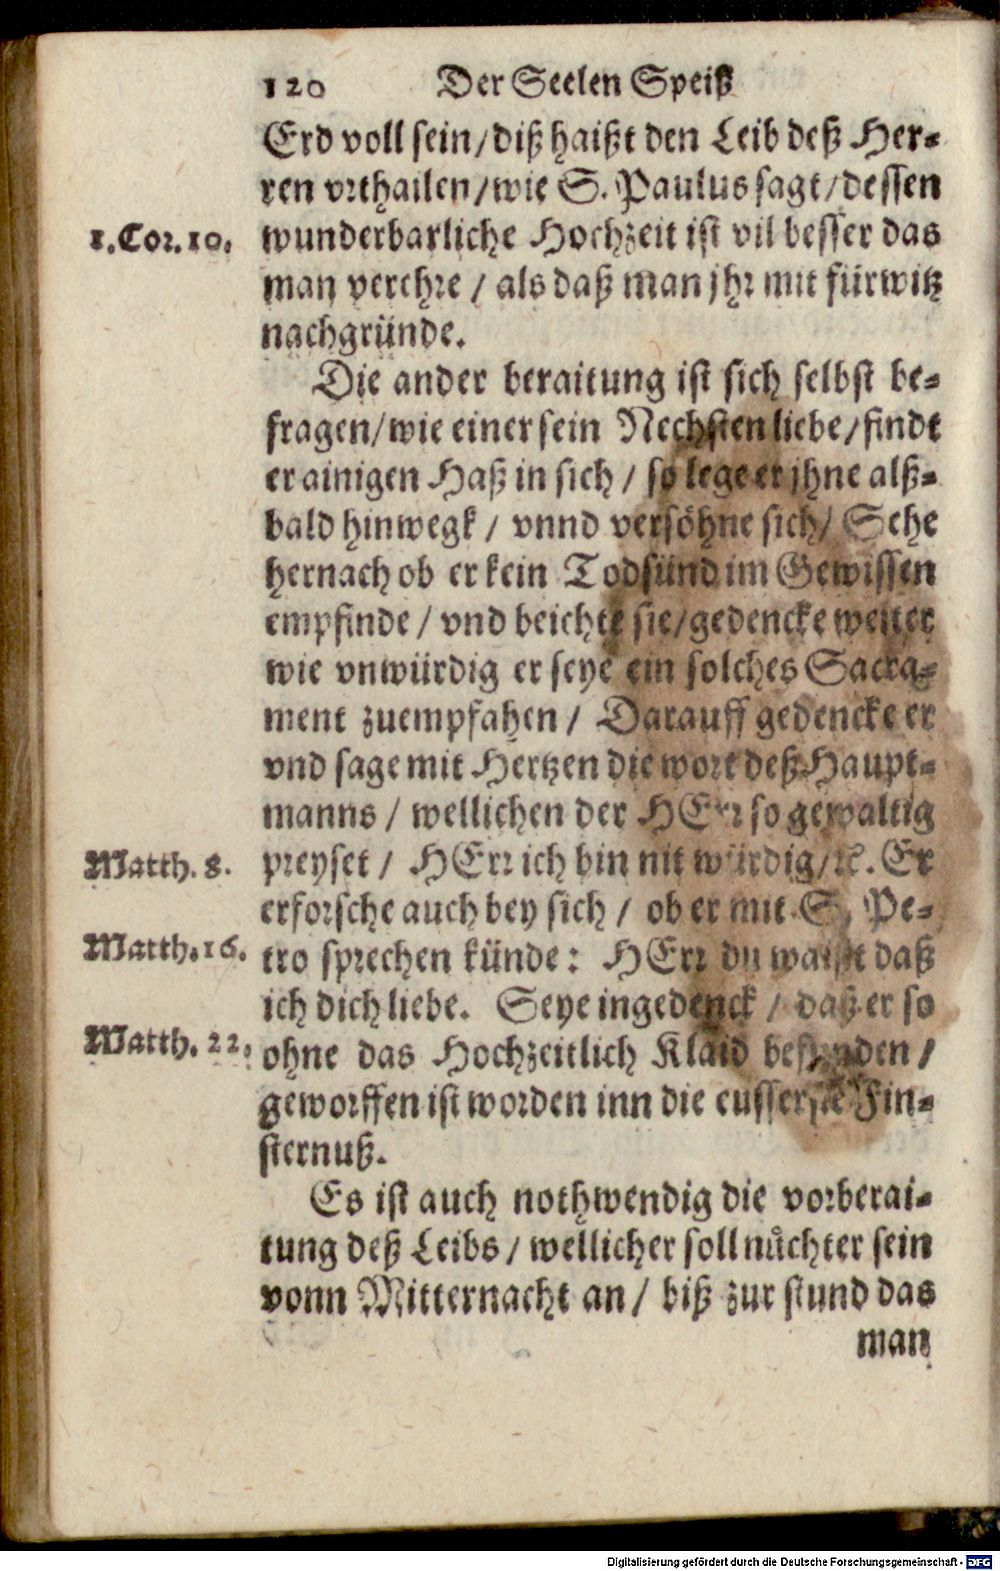 120 Der Seelen Speiß
Erd voll sein/diß haißt den Leib deß Her-
ren vrthailen/wie S. Paulus sagt/dessen
1.Cor.10. wunderbarliche Hochzeit ist vil besser das
man verehre / als daß man jhr mit fürwitz
nachgründe.
Die ander beraitung ist sich selbst be-
fragen/wie einer sein Nechsten liebe/findt
er ainigen Haß in sich / so lege er jhne alß-
bald hinwegk / vnnd versöhne sich/ Sehe
hernach ob er kein Todsünd im Gewissen
empfinde / vnd beichte sie/gedencke weiter
wie vnwürdig er seye ein solches Sacra-
ment zuempfahen / Darauff gedencke er
vnd sage mit Hertzen die wort deß Haupt-
manns / wellichen der HErr so gewaltig
Matth. 8. preyset / HErr ich bin nit würdig/ꝛc. Er
erforsche auch bey sich / ob er mit S. Pe-
Matth.16. tro sprechen künde: HErr du waist daß
ich dich liebe. Seye ingedenck / daß er so
Matth. 22. ohne das Hochzeitlich Klaid befunden /
geworffen ist worden inn die eusserste Fin-
sternuß.
Es ist auch nothwendig die vorberai-
tung deß Leibs / wellicher soll nuͤchter sein
vonn Mitternacht an / biß zur stund das
man
Digitalisierung gefördert durch die Deutsche Forschungsgemeinschaft - DFG